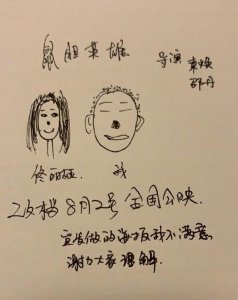 鼠胆英雄
导演 束焕
邵丹
佟丽娅. 我
改档8月2号 全国公映.
宣发做的海报我不满意
谢谢大家理解.